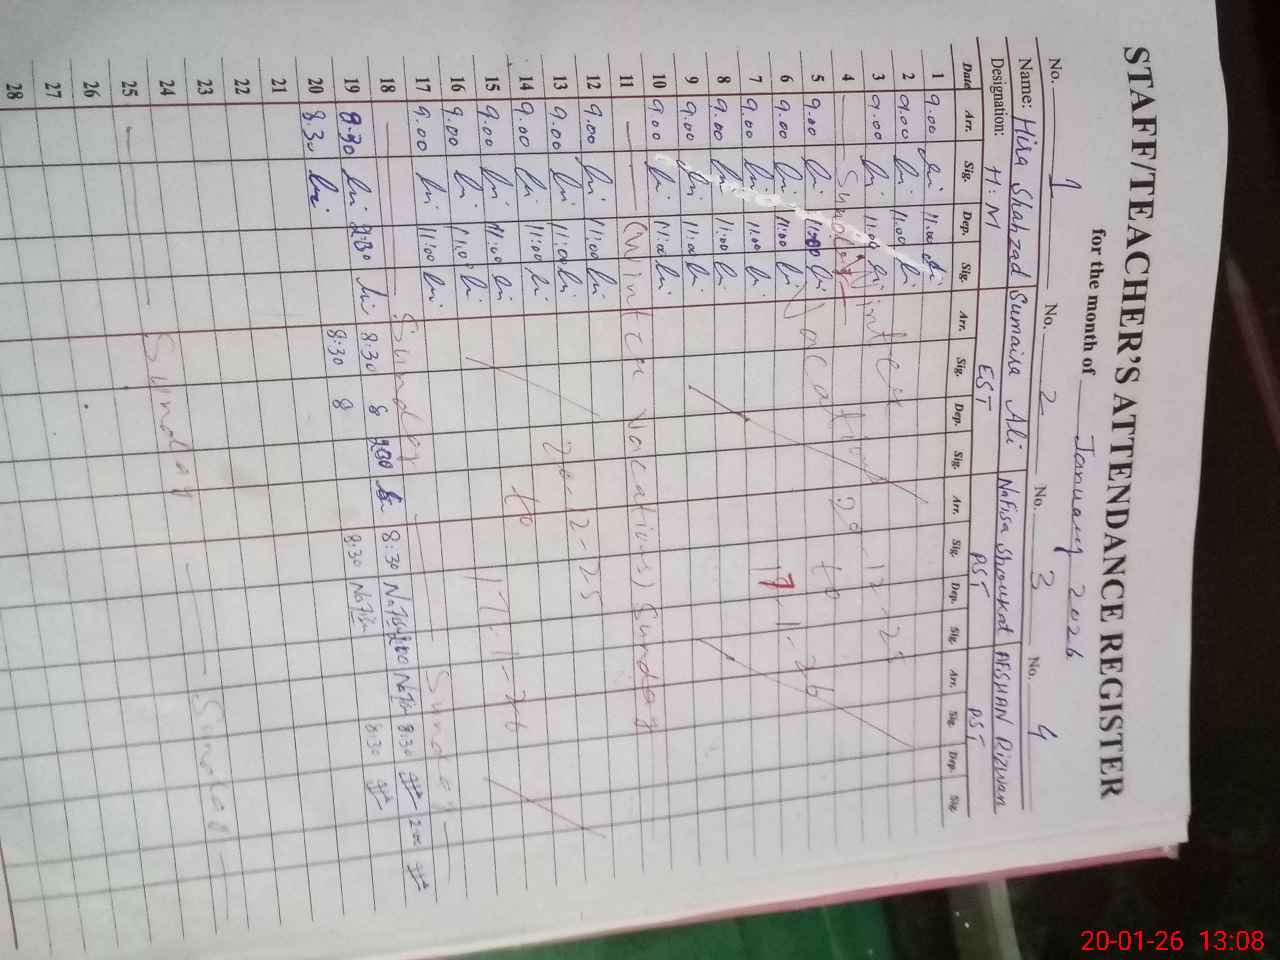 STAFF/TEACHER'S ATTENDANCE REGISTER
for the month of January 2026
No. 1 No. 2 No. 3 No. 4
Name: Hira Shahzad Sumaira Ali Nafisa Shoukat AFSHAN Rizwan
Designation: H:M EST PST PST
Date Arr. Sig. Dep. Sig. Arr. Sig. Dep. Sig. Arr. Sig. Dep. Sig. Arr. Sig. Dep. Sig.
1 9.00 11:00
2 9.00 11:00
3 9.00 11:00 Winter
4 Sunday 29-12-25
5 9.00 11:00 Vacation to
6 9.00 11:00 17-1-26
7 9.00 11:00
8 9.00 11:00
9 9.00 11:00
10 9.00 11:00
11 (Winter Vacations) Sunday
12 9.00 11:00
13 9.00 11:00 20-12-25
14 9.00 11:00 to
15 9.00 11:00 17-1-26
16 9.00 11:00
17 9.00 11:00
18 Sunday Sunday
19 8:30 2:30 8:30 200 8:30 Nafisa 200 8:30 2:00
20 8:30 8:30 8:30 Nafisa 8:30
21
22
23
24
25 Sunday Sunday
26
27
28
20-01-26 13:08